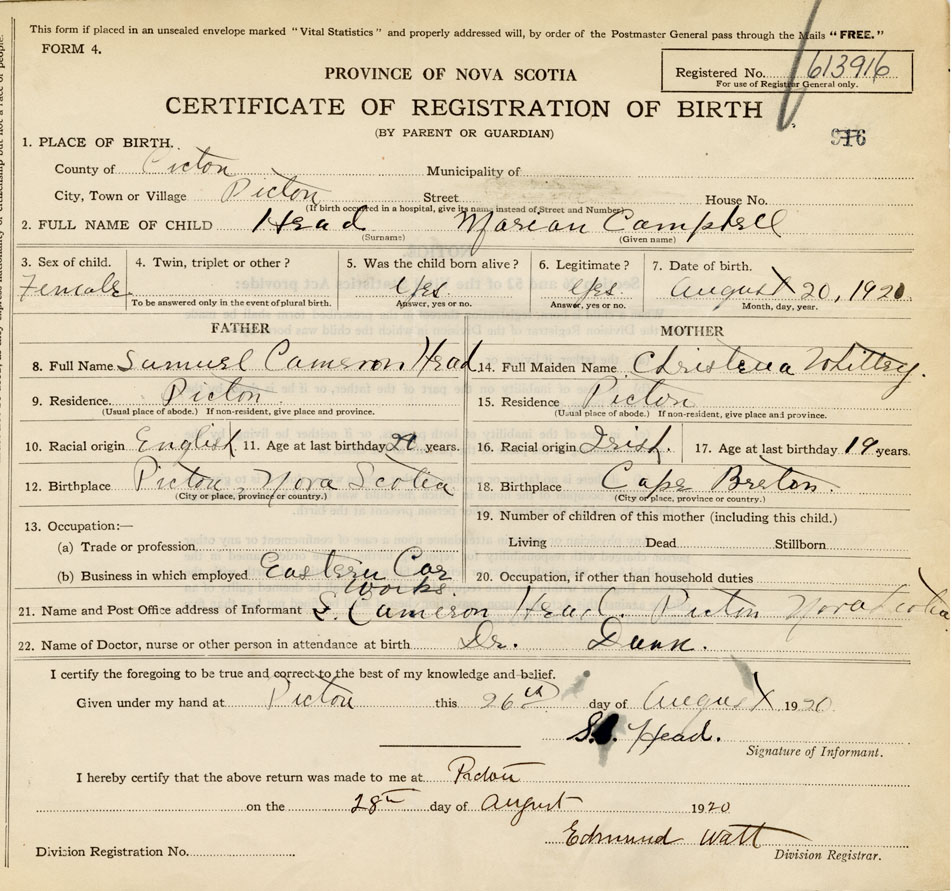 This form if placed in an unsealed envelope marked "Vital Statistics" and properly addressed will, by order of the Postmaster General pass through the Mails "FREE."
FORM 4.
PROVINCE OF NOVA SCOTIA
Registered No. 613916
For use of Registrar General only.
CERTIFICATE OF REGISTRATION OF BIRTH
(BY PARENT OR GUARDIAN)
916
1. PLACE OF BIRTH.
County of Picton Municipality of
City, Town or Village Picton Street House No.
(If birth occurred in a hospital, give its name instead of Street and Number)
2. FULL NAME OF CHILD Head Marion Campbell
(Surname) (Given name)
3. Sex of child. 4. Twin, triplet or other? 5. Was the child born alive? 6. Legitimate? 7. Date of birth.
Female Yes. Yes. August 20, 1920.
To be answered only in the event of plural birth. Answer, yes or no. Answer, yes or no. Month, day, year.
FATHER MOTHER
8. Full Name Samuel Cameron Head 14. Full Maiden Name Christena
9. Residence. Picton. 15. Residence Picton
(Usual place of abode.) If non-resident, give place and province. (Usual place of abode.) If non-resident, give place and province.
10. Racial origin English. 11. Age at last birthday years. 16. Racial origin Irish. 17. Age at last birthday 19 years.
12. Birthplace Picton, Nova Scotia 18. Birthplace Cape Breton.
(City or place, province or country.) (City or place, province or country.)
13. Occupation:— 19. Number of children of this mother (including this child.)
(a) Trade or profession Living Dead Stillborn
(b) Business in which employed Eastern Car 20. Occupation, if other than household duties
Works.
21. Name and Post Office address of Informant S. Cameron Head. Picton Nova Scotia
22. Name of Doctor, nurse or other person in attendance at birth Dr. Dunn.
I certify the foregoing to be true and correct to the best of my knowledge and belief.
Given under my hand at Picton this 26th day of August 1920
S.C. Head.
Signature of Informant.
I hereby certify that the above return was made to me at Picton
on the 28th day of August 1920
Edmund Watt
Division Registration No. Division Registrar.